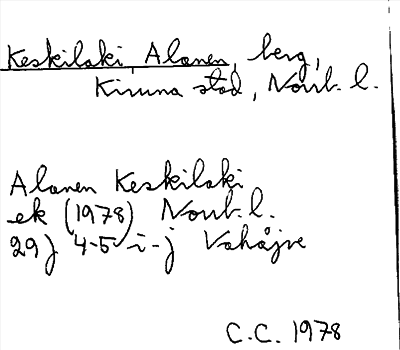 Keskilaki, Alanen, berg,
Kiruna stad, Norrb. l.
Alanen Keskilaki
ek (1978) Norrb. l.
29J 4-5 i-j Vahåjve
C.C. 1978